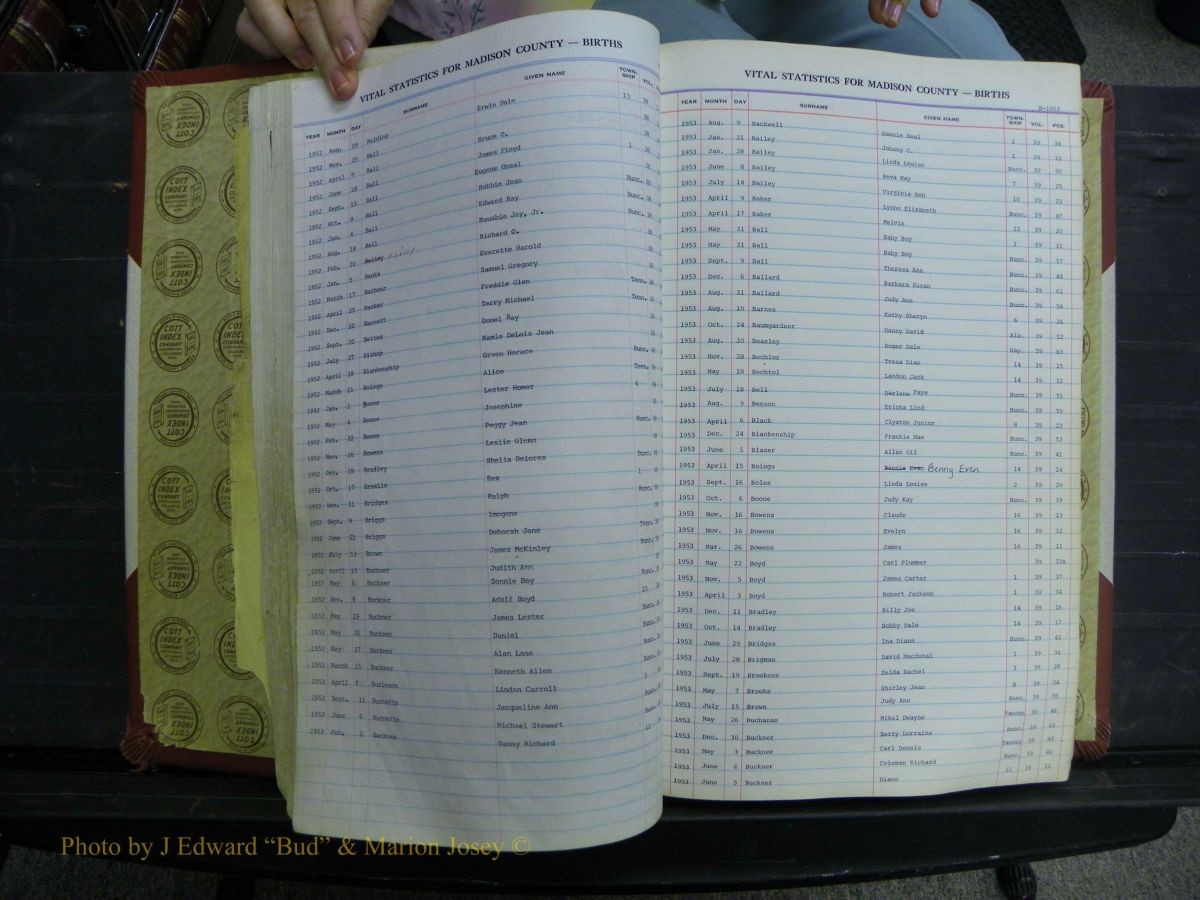 VITAL STATISTICS FOR MADISON COUNTY — BIRTHS
YEAR MONTH DAY SURNAME GIVEN NAME TOWN-SHIP VOL.
1952 Aug. 19 Balding Erwin Dale 13 38
1952 Nov. 25 Ball
1952 April 9 Ball Bruce O.
1952 June 18 Ball James Floyd 1
1952 Sept. 15 Ball Eugene Oneal
1952 Oct. 9 Ball Robbie Jean Bunc. 38
1952 Jan. 6 Ball Edward Ray Bunc. 38
1952 Aug. 19 Ball Mausbie Jay, Jr. Bunc. 38
1952 Feb. 22 Richard O.
1952 Jan. 5 Banks Everette Harold
1952 March 17 Barbour Samuel Gregory
1952 April 25 Barker Freddie Glen Tenn. 38
1952 Dec. 10 Barnett Terry Michael Tenn. 38
1952 Sept. 20 Bettes Donel Ray
1952 July 27 Bishop Mamie DeLois Jean
1952 April 18 Blankenship Orven Horace Bunc.
1952 March 11 Boings Alice Tenn.
1952 Jan. 1 Boone Lester Homer 4
1952 May 4 Boone Josephine
1952 Feb. 22 Boone Peggy Jean Bunc.
1952 Nov. 26 Bowens Leslie Glenn
1952 Oct. 18 Bradley Shelia Delores Bunc.
1952 Oct. 17 Bramlie Rex 1
1952 Nov. 11 Bridges Ralph Bunc.
1952 Sept. 9 Briggs Imogene
1952 June 21 Briggs Deborah Jane Tenn.
1952 July 13 Brown James McKinley Bunc.
1952 April 13 Buckner Judith Ann
1952 May 8 Buckner Sonnie Boy Bunc.
1952 Nov. 9 Buckner Adolf Boyd 10
1952 May 19 Buckner James Lester Bunc.
1952 May 20 Buckner Daniel Bunc.
1952 May 27 Buckner Alan Lane Bunc.
1952 March 15 Buckner Kenneth Allen Bunc.
1952 April 7 Burleson Linden Carroll
1952 Sept. 11 Burnette Jacqueline Ann Bunc.
1952 June 6 Burnette Micheal Stewart Bunc.
1952 Feb. 3 Buckner Danny Richard 12
VITAL STATISTICS FOR MADISON COUNTY — BIRTHS
B-1953
YEAR MONTH DAY SURNAME GIVEN NAME TOWN-SHIP VOL. PGE.
1953 Aug. 9 Backwell Dannie Neal 1 39 38
1953 Jan. 21 Bailey Johnny C. 1 39 33
1953 Jan. 28 Bailey Linda Louise Bunc. 39 50
1953 June 8 Bailey Reva May 7 39 25
1953 July 14 Bailey Virginia Ann 10 39 22
1953 April 9 Baker Lynne Elizabeth Bunc. 39 47
1953 April 17 Baker Melvin 12 39 20
1953 May 31 Ball Baby Boy 1 39 31
1953 May 31 Ball Baby Boy Bunc. 39 57
1953 Sept. 9 Ball Theresa Ann Bunc. 39 44
1953 Dec. 6 Ballard Barbara Susan Bunc. 39 61
1953 Aug. 31 Ballard Judy Ann Bunc. 39 58
1953 Aug. 10 Barnes Kathy Sheryn 6 39 26
1953 Oct. 24 Baumgardner Dancy David Ala. 39 52
1953 Aug. 30 Beasley Roger Dale Hay. 39 43
1953 Nov. 28 Bechlor Tresa Dian 14 39 15
1953 May 18 Bechtol Landon Jack 14 39 32
1953 July 18 Bell Darlene Faye Bunc. 39 55
1953 Aug. 9 Benson Ericka Lind Bunc. 39 59
1953 April 6 Black Clyston Junior 8 39 23
1953 Dec. 24 Blankenship Frankie Mae Bunc. 39 53
1953 June 5 Blazer Allan Gil Bunc. 39 41
1953 April 15 Boings Bennie Evan Benny Even 14 39 14
1953 Sept. 16 Boles Linda Louise 2 39 29
1953 Oct. 6 Boone Judy Kay Bunc. 39 39
1953 Nov. 16 Bowens Claude 16 39 13
1953 Nov. 16 Bowens Evelyn 16 39 12
1953 Mar. 26 Bowens James 16 39 11
1953 May 22 Boyd Carl Plummer 39 22A
1953 Nov. 5 Boyd James Carter 1 39 37
1953 April 3 Boyd Robert Jackson 1 39 34
1953 Dec. 11 Bradley Billy Joe 14 39 16
1953 Oct. 14 Bradley Bobby Dale 14 39 17
1953 June 29 Bridges Ina Diann Bunc. 39 42
1953 July 28 Brigman David Macdonal 1 39 36
1953 Sept. 19 Brookens Zelda Rachel 3 39 28
1953 May 7 Brooks Shirley Jean 8 39 24
1953 July 15 Brown Judy Ann Bunc. 39 56
1953 May 26 Buchanan Mikel Dwayne Yancey 39 46
1953 Dec. 30 Buckner Betty Lorraine Bunc. 39 62
1953 May 3 Buckner Carl Dennis Yancey 39 43
1953 June 6 Buckner Coleman Richard Bunc. 39 40
1953 June 5 Buckner Diane 12 39 21
COTT INDEX COMPANY
Photo by J Edward “Bud” & Marion Josey ©